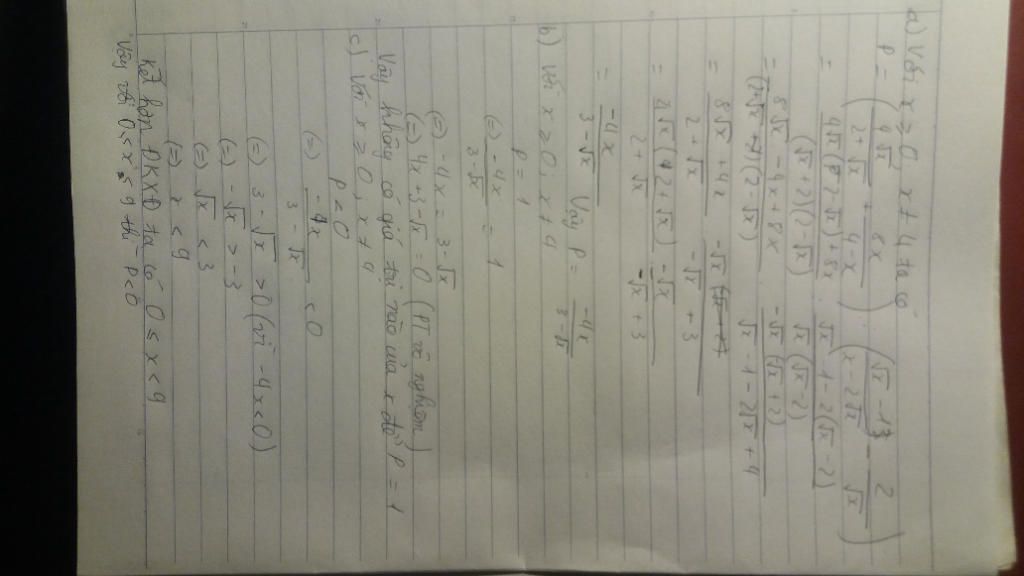 a) Với x ≥ 0, x ≠ 4 ta có
P = (4√x / 2+√x + 8x / 4-x) : (√x - 1 / x-2√x - 2 / √x)
= 4√x (2-√x) + 8x / (√x+2)(2-√x) : √x - 1 - 2(√x-2) / √x(√x-2)
= 8√x - 4x + 8x / (2√x+2)(2-√x) . -√x (√x+2) / √x - 1 - 2√x + 4
= 8√x + 4x / 2+√x . -√x / -√x + 3
= 4√x (2+√x) / 2+√x . -√x / -√x + 3
= -4x / 3-√x Vậy P = -4x / 3-√x
b) Với x ≥ 0, x ≠ 4
P = 1
(=) -4x / 3-√x = 1
(=) -4x = 3-√x
(=) 4x + 3-√x = 0 (PT vô nghiệm)
Vậy không có giá trị nào của x để P = 1
c) Với x ≥ 0, x ≠ 9
P < 0
(=) -4x / 3-√x < 0
(=) 3-√x > 0 (vì -4x < 0)
(=) -√x > -3
(=) √x < 3
(=) x < 9
Kết hợp ĐKXĐ ta có 0 ≤ x < 9
Vậy với 0 ≤ x ≤ 9 thì P < 0